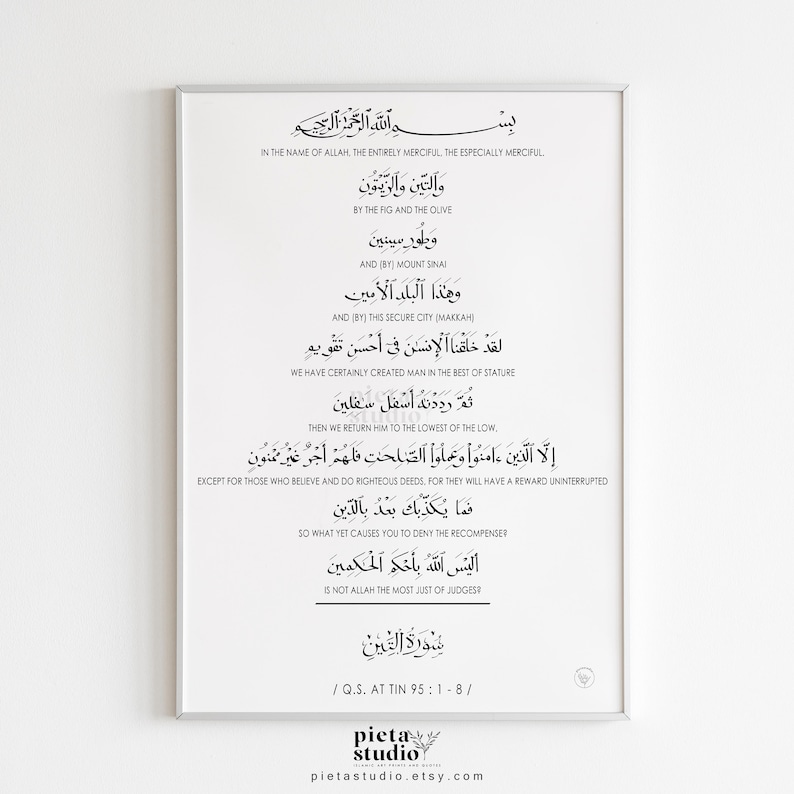 بِسْمِ ٱللَّهِ ٱلرَّحْمَٰنِ ٱلرَّحِيمِ
IN THE NAME OF ALLAH, THE ENTIRELY MERCIFUL, THE ESPECIALLY MERCIFUL.
وَٱلتِّينِ وَٱلزَّيْتُونِ
BY THE FIG AND THE OLIVE
وَطُورِ سِينِينَ
AND (BY) MOUNT SINAI
وَهَٰذَا ٱلْبَلَدِ ٱلْأَمِينِ
AND (BY) THIS SECURE CITY (MAKKAH)
لَقَدْ خَلَقْنَا ٱلْإِنسَٰنَ فِىٓ أَحْسَنِ تَقْوِيمٍ
WE HAVE CERTAINLY CREATED MAN IN THE BEST OF STATURE
ثُمَّ رَدَدْنَٰهُ أَسْفَلَ سَٰفِلِينَ
THEN WE RETURN HIM TO THE LOWEST OF THE LOW,
إِلَّا ٱلَّذِينَ ءَامَنُوا۟ وَعَمِلُوا۟ ٱلصَّٰلِحَٰتِ فَلَهُمْ أَجْرٌ غَيْرُ مَمْنُونٍ
EXCEPT FOR THOSE WHO BELIEVE AND DO RIGHTEOUS DEEDS, FOR THEY WILL HAVE A REWARD UNINTERRUPTED
فَمَا يُكَذِّبُكَ بَعْدُ بِٱلدِّينِ
SO WHAT YET CAUSES YOU TO DENY THE RECOMPENSE?
أَلَيْسَ ٱللَّهُ بِأَحْكَمِ ٱلْحَٰكِمِينَ
IS NOT ALLAH THE MOST JUST OF JUDGES?
سُورَةُ ٱلتِّينِ
/ Q.S. AT TIN 95 : 1 - 8 /
pieta
studio
ISLAMIC ART PRINTS AND QUOTES
pietastudio.etsy.com